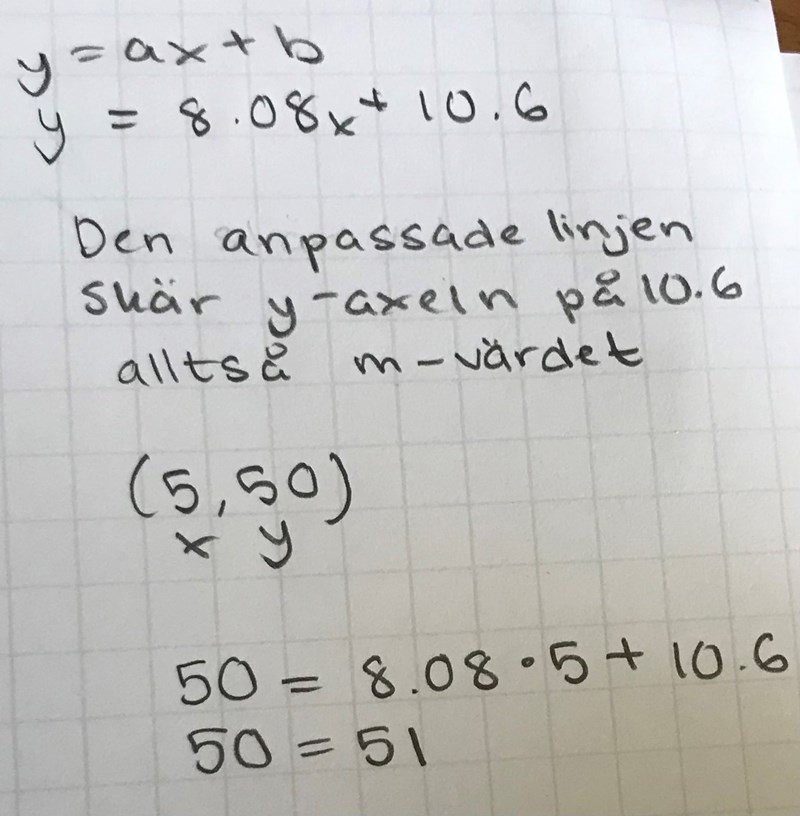 y = ax + b
y = 8.08x + 10.6
Den anpassade linjen
skär y-axeln på 10.6
alltså m-värdet
(5, 50)
x y
50 = 8.08 · 5 + 10.6
50 = 51